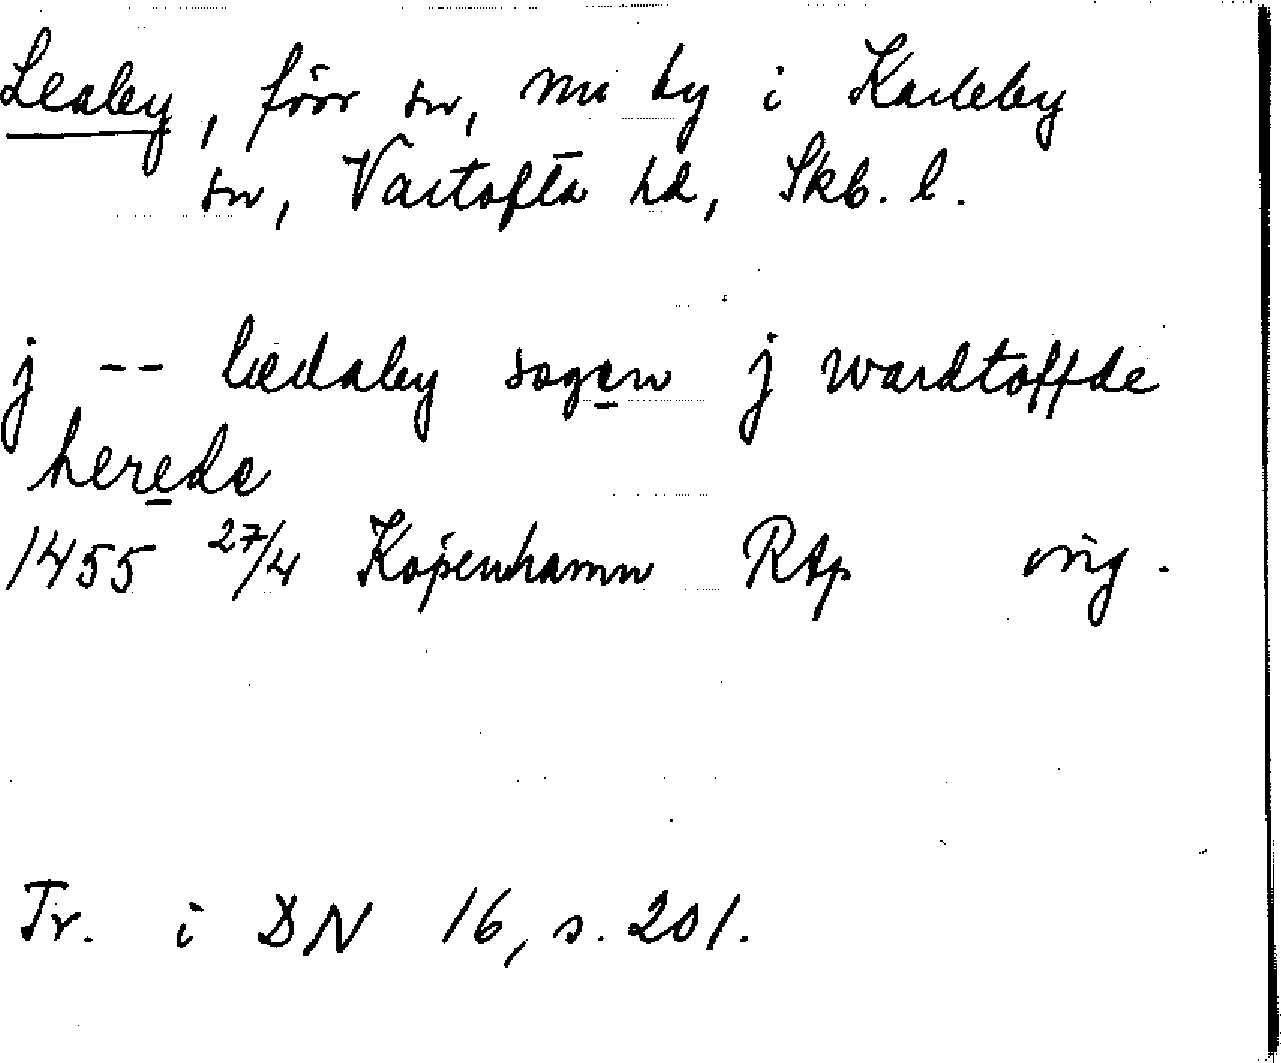 Lealey, förr sn, nu by i Karleby
sn, Vartofta hd, Skb. l.
j -- lædaley sogen j wardtoffde
herede
1455 27/4 Köpenhamn RAp orig.
Tr. i DN 16, s. 201.